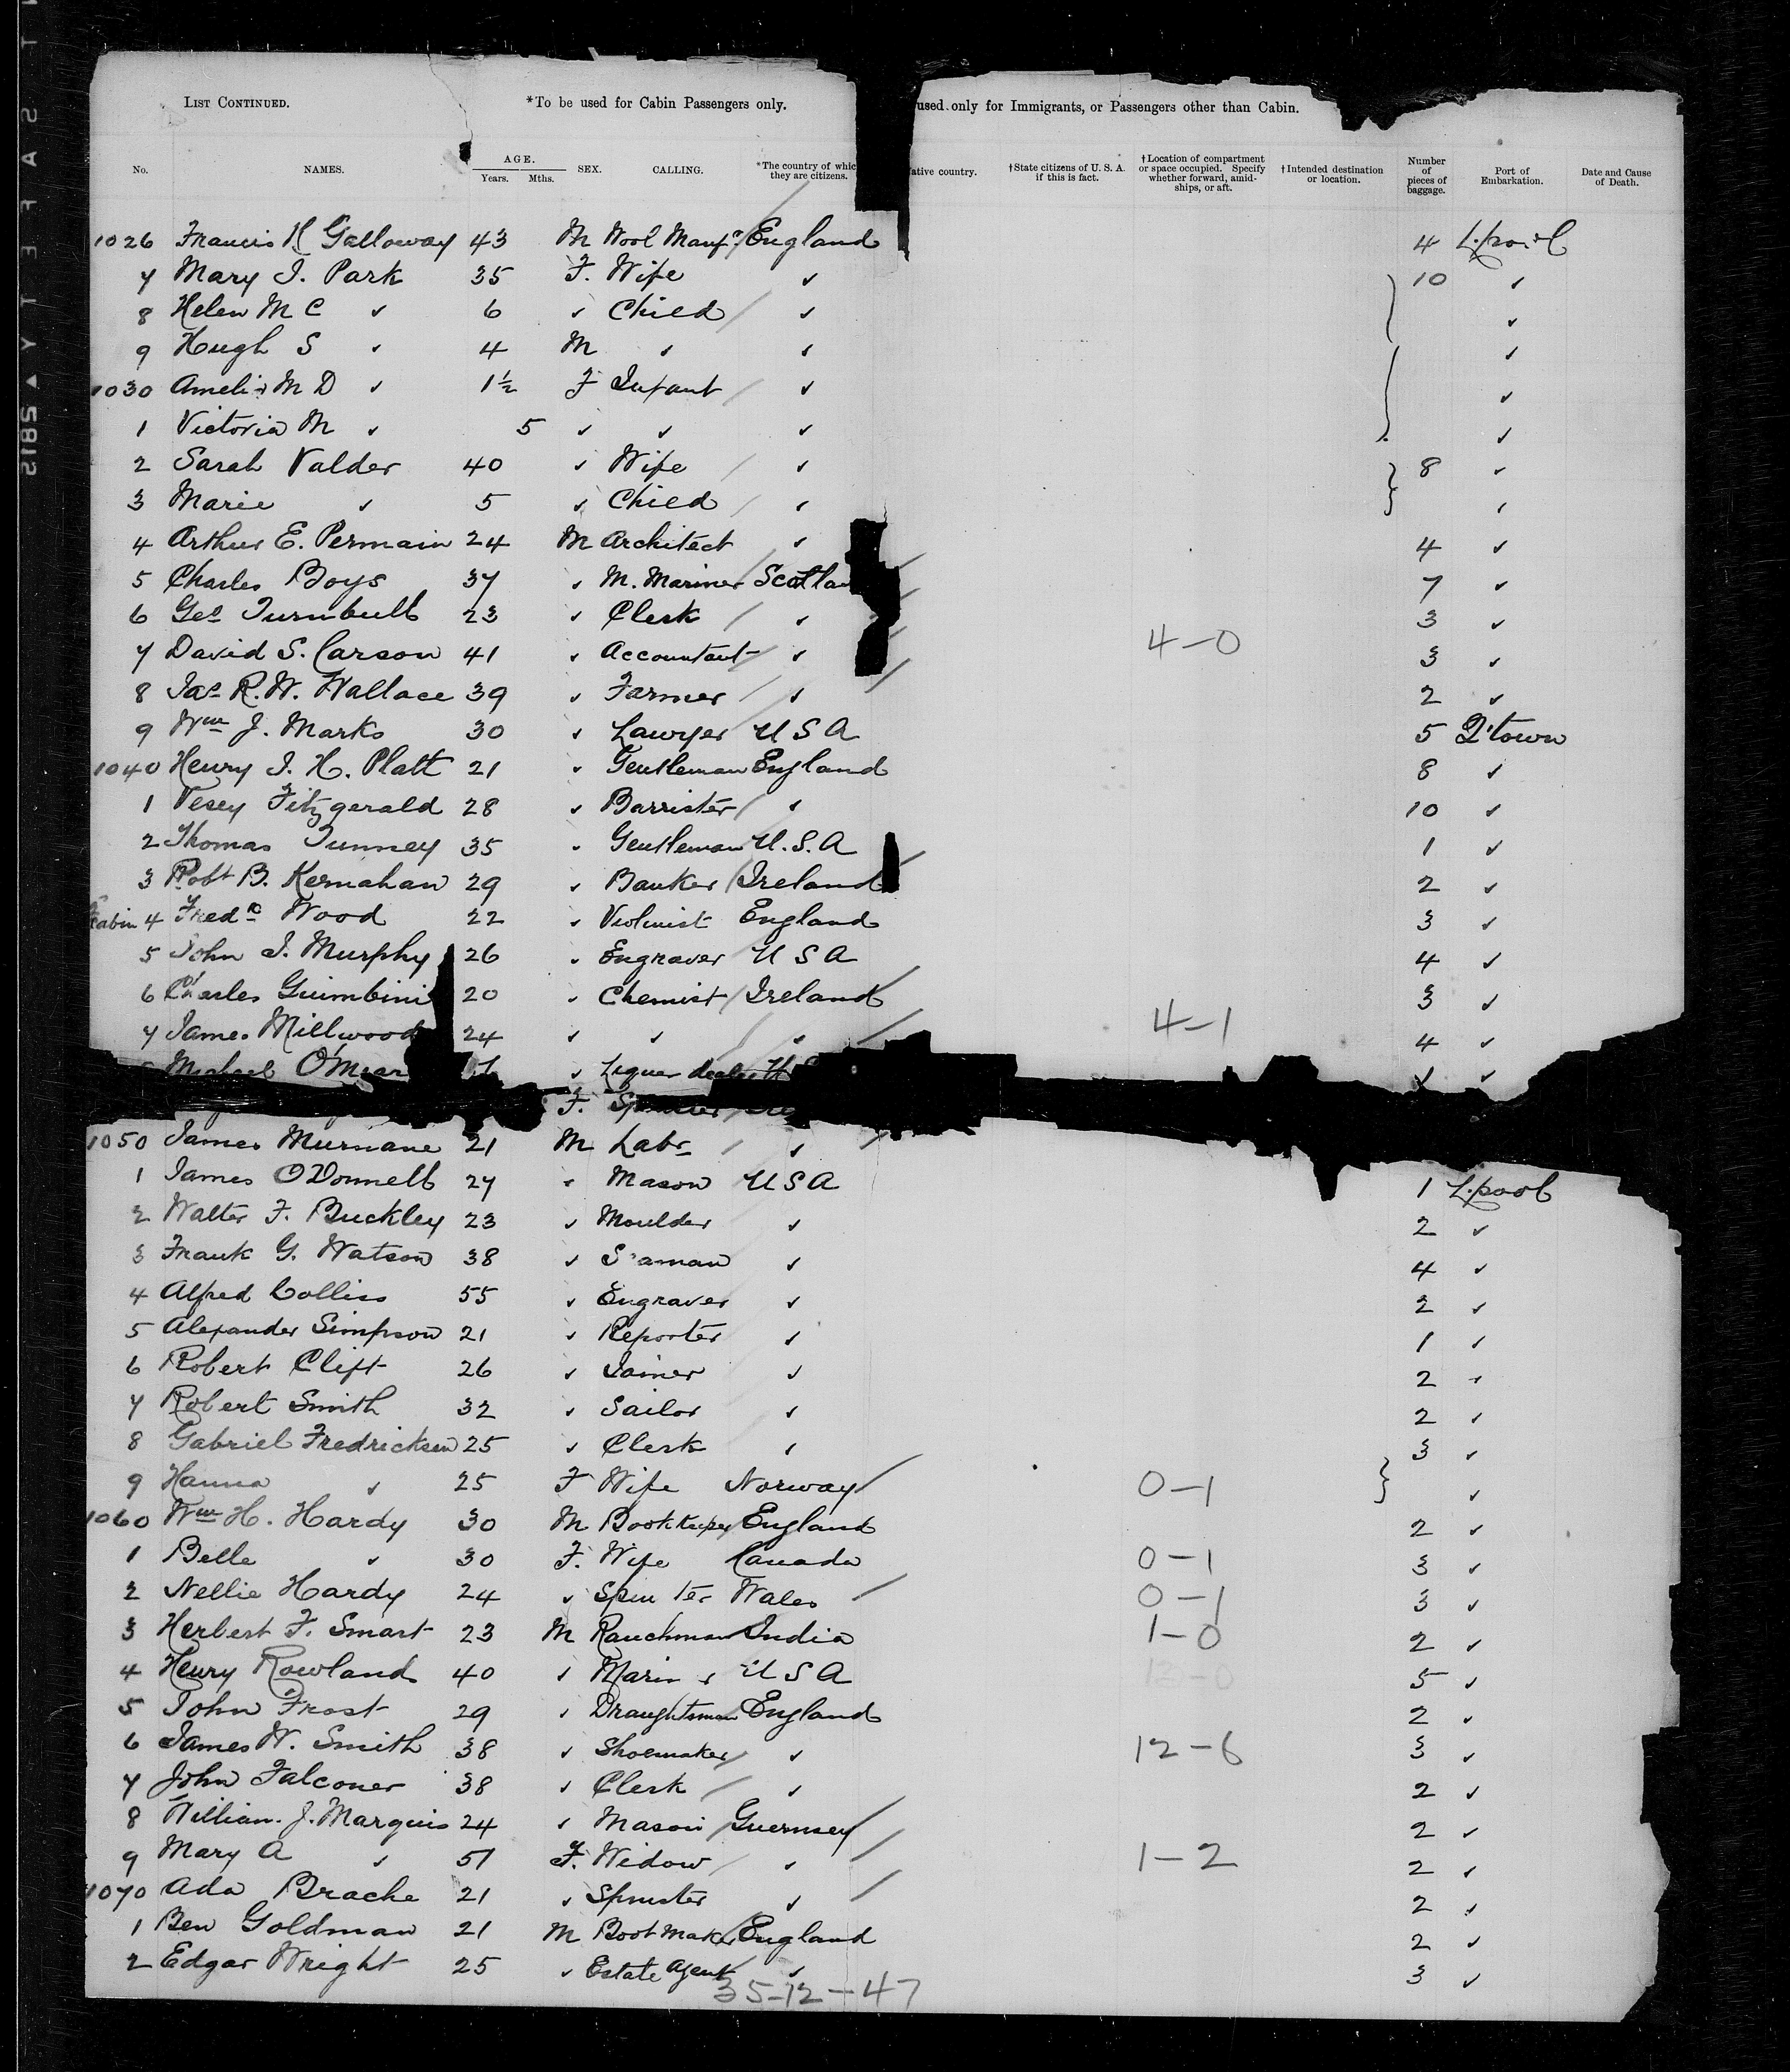 LIST CONTINUED. *To be used for Cabin Passengers only. used only for Immigrants, or Passengers other than Cabin.
No. NAMES. AGE. Years. Mths. SEX. CALLING. *The country of which they are citizens. ative country. †State citizens of U. S. A. if this is fact. †Location of compartment or space occupied. Specify whether forward, amidships, or aft. †Intended destination or location. Number of pieces of baggage. Port of Embarkation. Date and Cause of Death.
1026 Francis H Galloway 43 M Wool Manfr England 4 L.pool
7 Mary J. Park 35 F. Wife ✓ 10 ✓
8 Helen M C ✓ 6 ✓ Child ✓ ✓
9 Hugh S ✓ 4 M ✓ ✓ ✓
1030 Amelia M D ✓ 1½ F Infant ✓ ✓
1 Victoria M ✓ 5 ✓ ✓ ✓ ✓
2 Sarah Valder 40 ✓ Wife ✓ 8 ✓
3 Marie ✓ 5 ✓ Child ✓ ✓
4 Arthur E. Permain 24 M Architect ✓ 4 ✓
5 Charles Boys 37 ✓ M. Mariner Scotlan 7 ✓
6 Geo Turnbull 23 ✓ Clerk ✓ 3 ✓
7 David S. Carson 41 ✓ Accountant ✓ 4-0 3 ✓
8 Jas R. W. Wallace 39 ✓ Farmer ✓ 2 ✓
9 Wm J. Marks 30 ✓ Lawyer U S A 5 Q'town
1040 Henry J. H. Platt 21 ✓ Gentleman England 8 ✓
1 Vesey Fitzgerald 28 ✓ Barrister ✓ 10 ✓
2 Thomas Tunney 35 ✓ Gentleman U.S.A 1 ✓
3 Robt B. Kernahan 29 ✓ Banker Ireland 2 ✓
Cabin 4 Fredk Wood 22 ✓ Violinist England 3 ✓
5 John J. Murphy 26 ✓ Engraver U S A 4 ✓
6 Charles Guimbini 20 ✓ Chemist Ireland 3 ✓
7 James Millwood 24 ✓ ✓ ✓ 4-1 4 ✓
Michael O'Mear ✓ Liquor dealer ✓
F.
1050 James Murnane 21 M Labr ✓
1 James O'Donnell 27 ✓ Mason U S A 1 L.pool
2 Walter F. Buckley 23 ✓ Moulder ✓ 2 ✓
3 Frank G. Watson 38 ✓ Seaman ✓ 4 ✓
4 Alfred Colliss 55 ✓ Engraver ✓ 2 ✓
5 Alexander Simpson 21 ✓ Reporter ✓ 1 ✓
6 Robert Clift 26 ✓ Joiner ✓ 2 ✓
7 Robert Smith 32 ✓ Sailor ✓ 2 ✓
8 Gabriel Fredricksen 25 ✓ Clerk ✓ 3 ✓
9 Hanna ✓ 25 F Wife Norway 0-1 ✓
1060 Wm H. Hardy 30 M Bookkeeper England 2 ✓
1 Belle ✓ 30 F. Wife Canada 0-1 3 ✓
2 Nellie Hardy 24 ✓ Spinster Wales 0-1 3 ✓
3 Herbert F. Smart 23 M Ranchman India 1-0 2 ✓
4 Henry Rowland 40 ✓ Mariner U S A 12-0 5 ✓
5 John Frost 29 ✓ Draughtsman England 2 ✓
6 James W. Smith 38 ✓ Shoemaker ✓ 12-6 3 ✓
7 John Falconer 38 ✓ Clerk ✓ 2 ✓
8 William J. Marquis 24 ✓ Mason Guernsey 2 ✓
9 Mary A ✓ 51 F. Widow ✓ 1-2 2 ✓
1070 Ada Brache 21 ✓ Spinster ✓ 2 ✓
1 Ben Goldman 21 M Boot Maker England 2 ✓
2 Edgar Wright 25 ✓ Estate Agent ✓ 3 ✓
35-12-47